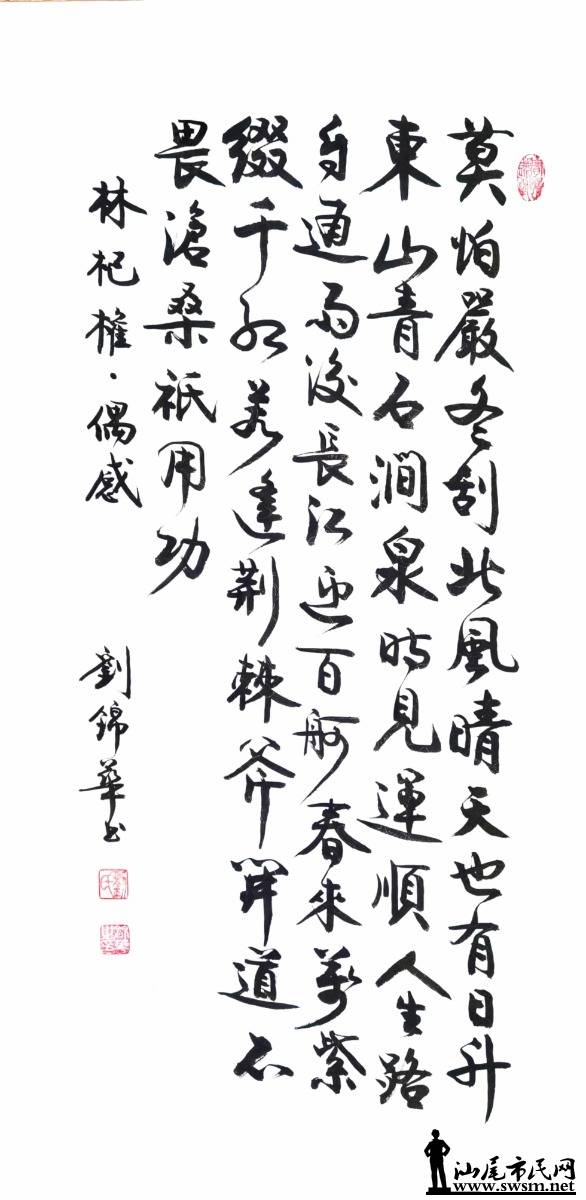 莫怕嚴冬刮北風晴天也有日升
東山青石澗泉時見運順人生路
自通雨後長江迎百舸春來萬紫
綴千紅若逢荆棘斧開道不
畏滄桑祇用功
林杞權·偶感
劉錦華书
汕尾市民网
www.swsm.net